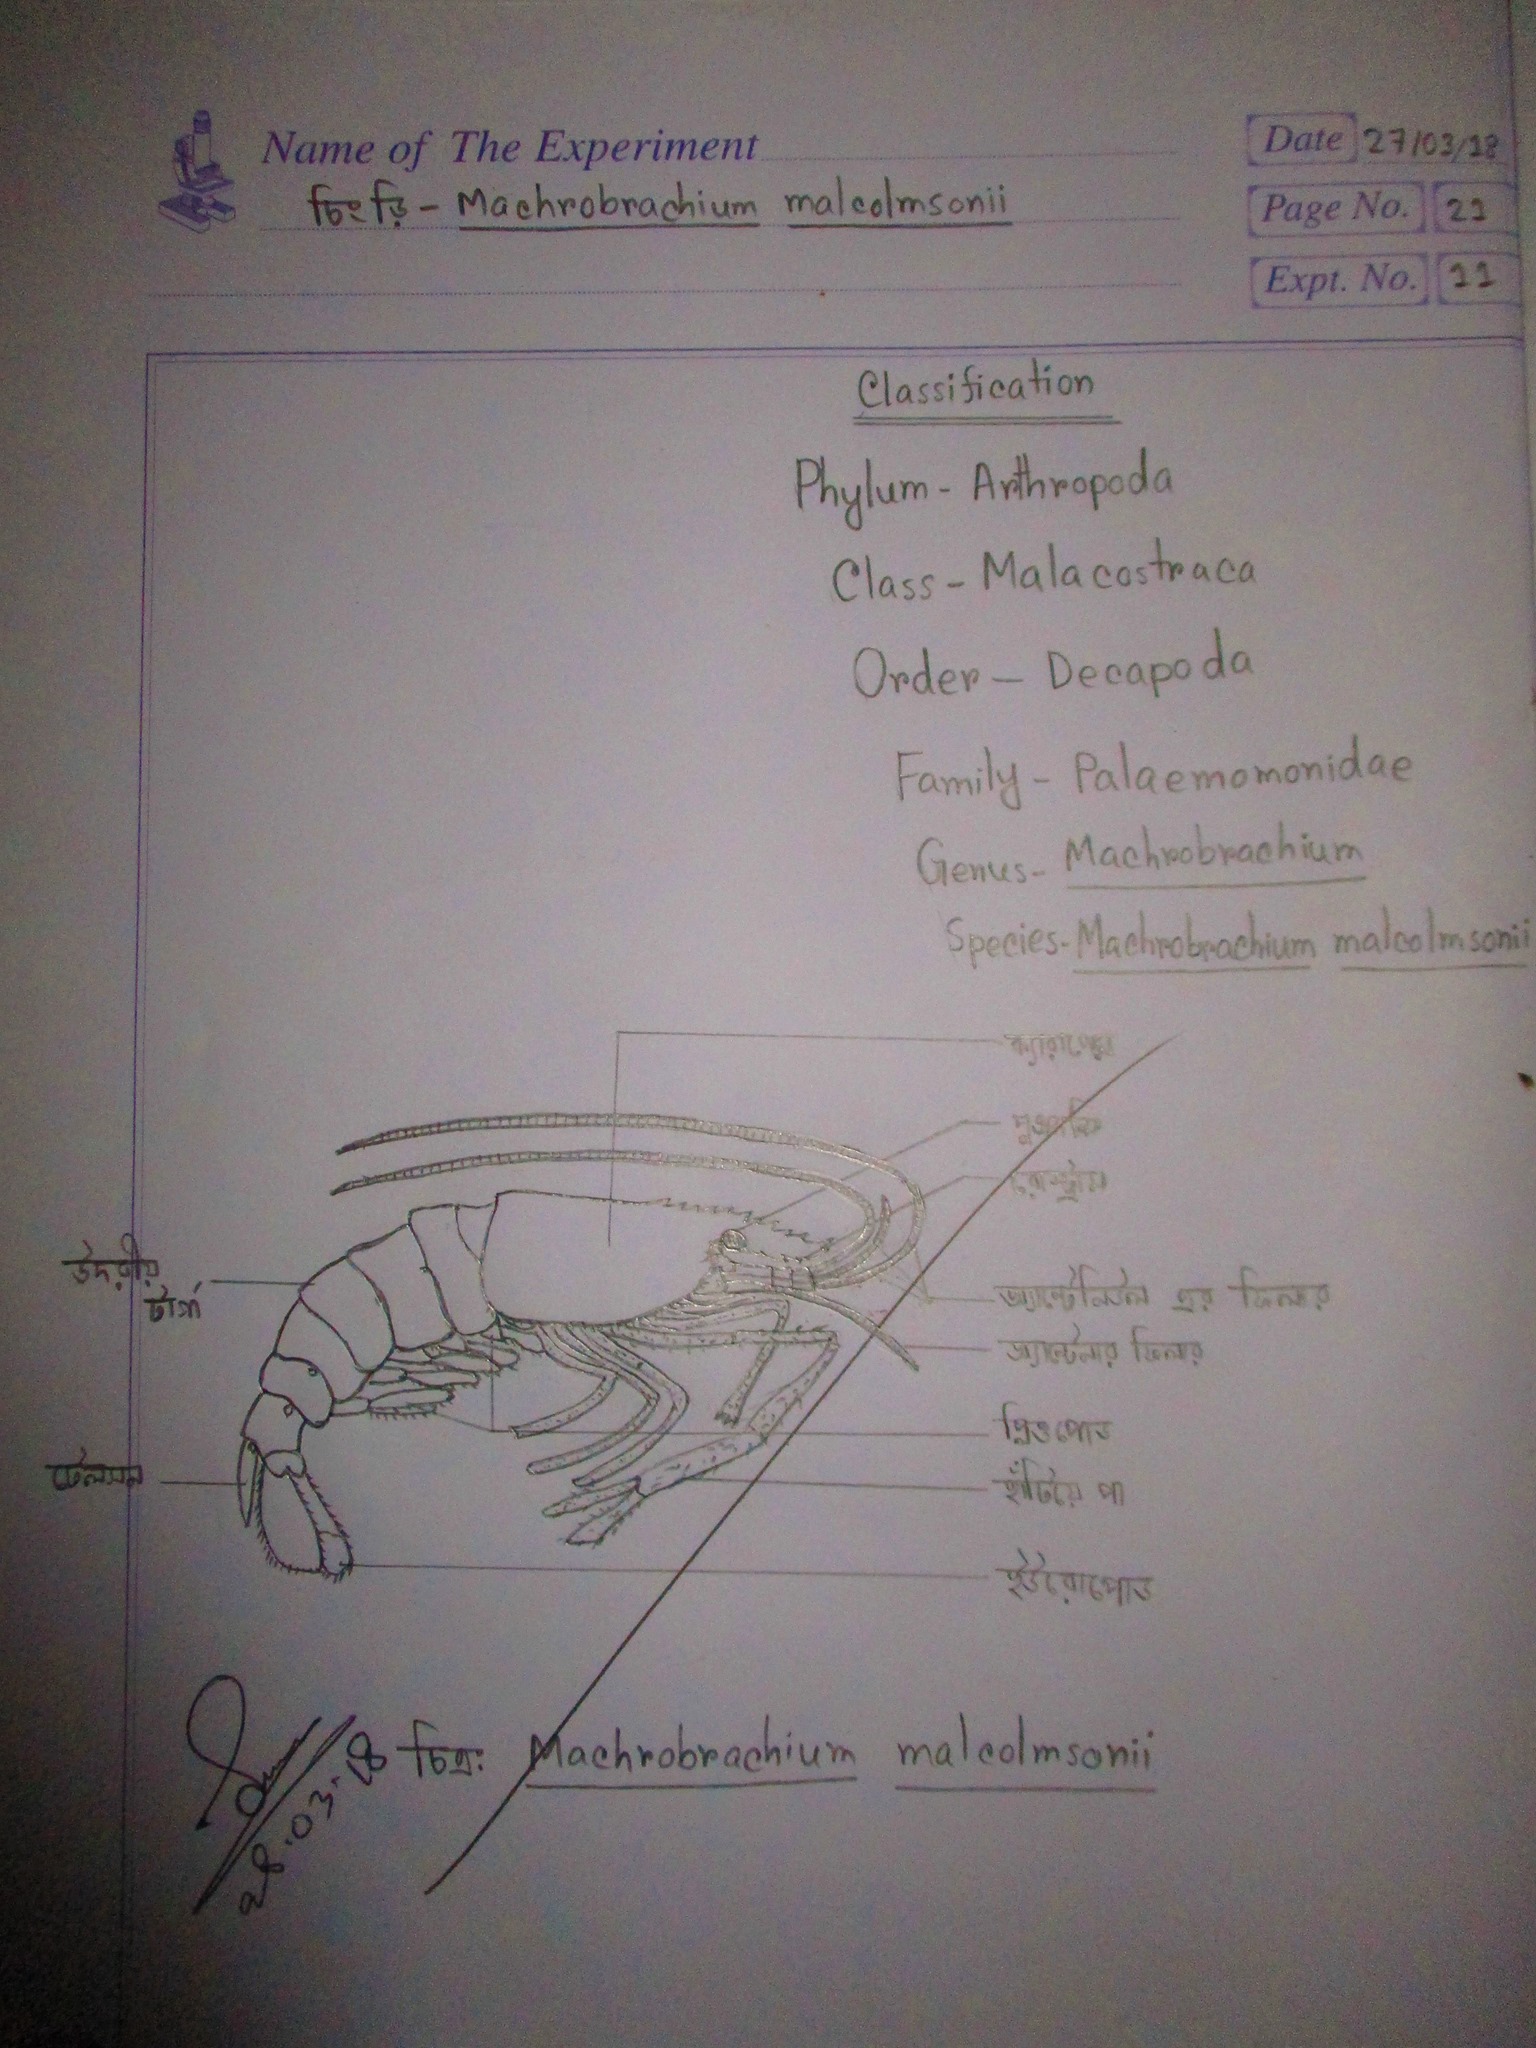 Name of The Experiment
চিংড়ি - Machrobrachium malcolmsonii
Date 27/03/18
Page No. 21
Expt. No. 11
Classification
Phylum - Arthropoda
Class - Malacostraca
Order - Decapoda
Family - Palaemomonidae
Genus - Machrobrachium
Species - Machrobrachium malcolmsonii
ক্যারাপেস
পুঞ্জাক্ষি
রোস্ট্রাম
উদরীয়
টার্গা
অ্যান্টেনিউল এর ফিলার
অ্যান্টেনার ফিলার
প্লিওপোড
টেলসন
হাঁটিয়ে পা
ইউরোপোড
চিত্র: Machrobrachium malcolmsonii
28.03.18